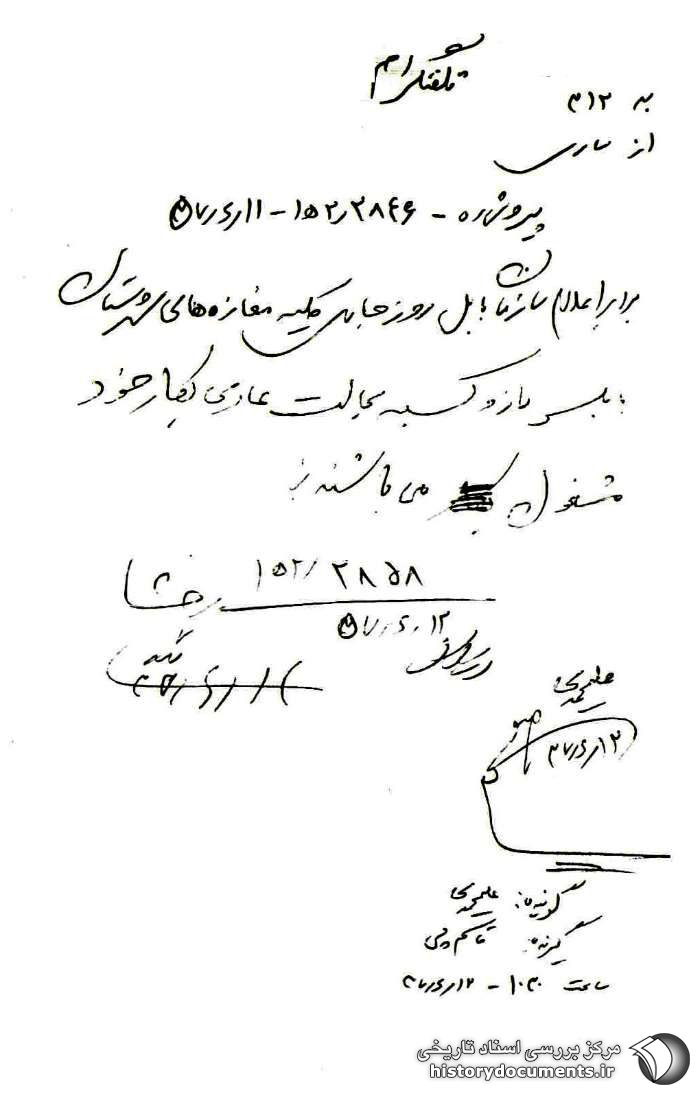 تلفنگرام
به ۳۱۲
از ساری
پیرو شماره - ۱۵۲٫۳۸۴۶ - ۱۱٫۶٫۵۷
برابر اعلام سازمان بابل روز جاری کلیه مغازه‌های شهرستان
بابلسر باز و کسبه بحالت عادی بکار خود
مشغول می باشند
۱۵۲/۳۸۵۸
رخشا
۱۲٫۶٫۵۷
علیمحمدی
۱۲٫۶٫۳۷
گوینده: علیمحمدی
گیرنده: قاسم
ساعت ۱۰۳۰ - ۱۲٫۶٫۳۷
مرکز بررسی اسناد تاریخی
historydocuments.ir